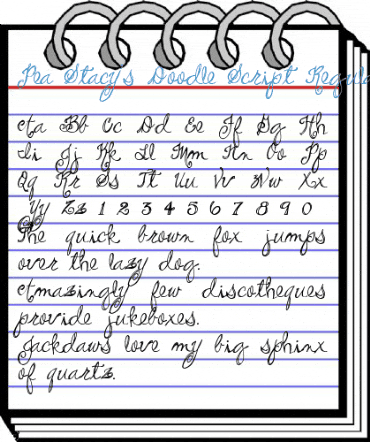 Pea Stacy's Doodle Script Regula
Aa Bb Cc Dd Ee Ff Gg Hh
Ii Jj Kk Ll Mm Nn Oo Pp
Qq Rr Ss Tt Uu Vv Ww Xx
Yy Zz 1 2 3 4 5 6 7 8 9 0
The quick brown fox jumps
over the lazy dog.
Amazingly few discotheques
provide jukeboxes.
Jackdaws love my big sphinx
of quartz.